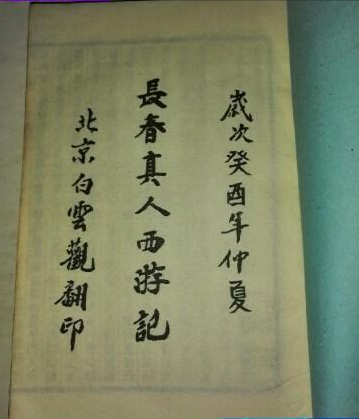 歲次癸酉年仲夏
長春真人西游記
北京白雲觀翻印